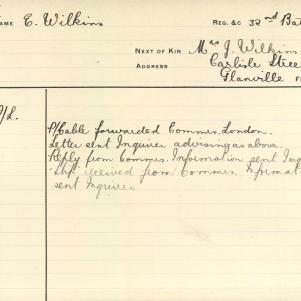 NAME E. Wilkins REG. &C 32nd Bat
NEXT OF KIN Mrs J. Wilkins
ADDRESS Carlisle Stree
Glanville
P/Cable forwarded Commrs. London.
Letter sent Inquirer advising as above.
Reply from Commrs. Information sent Inq
received from Commrs. Informat
sent Inquirer